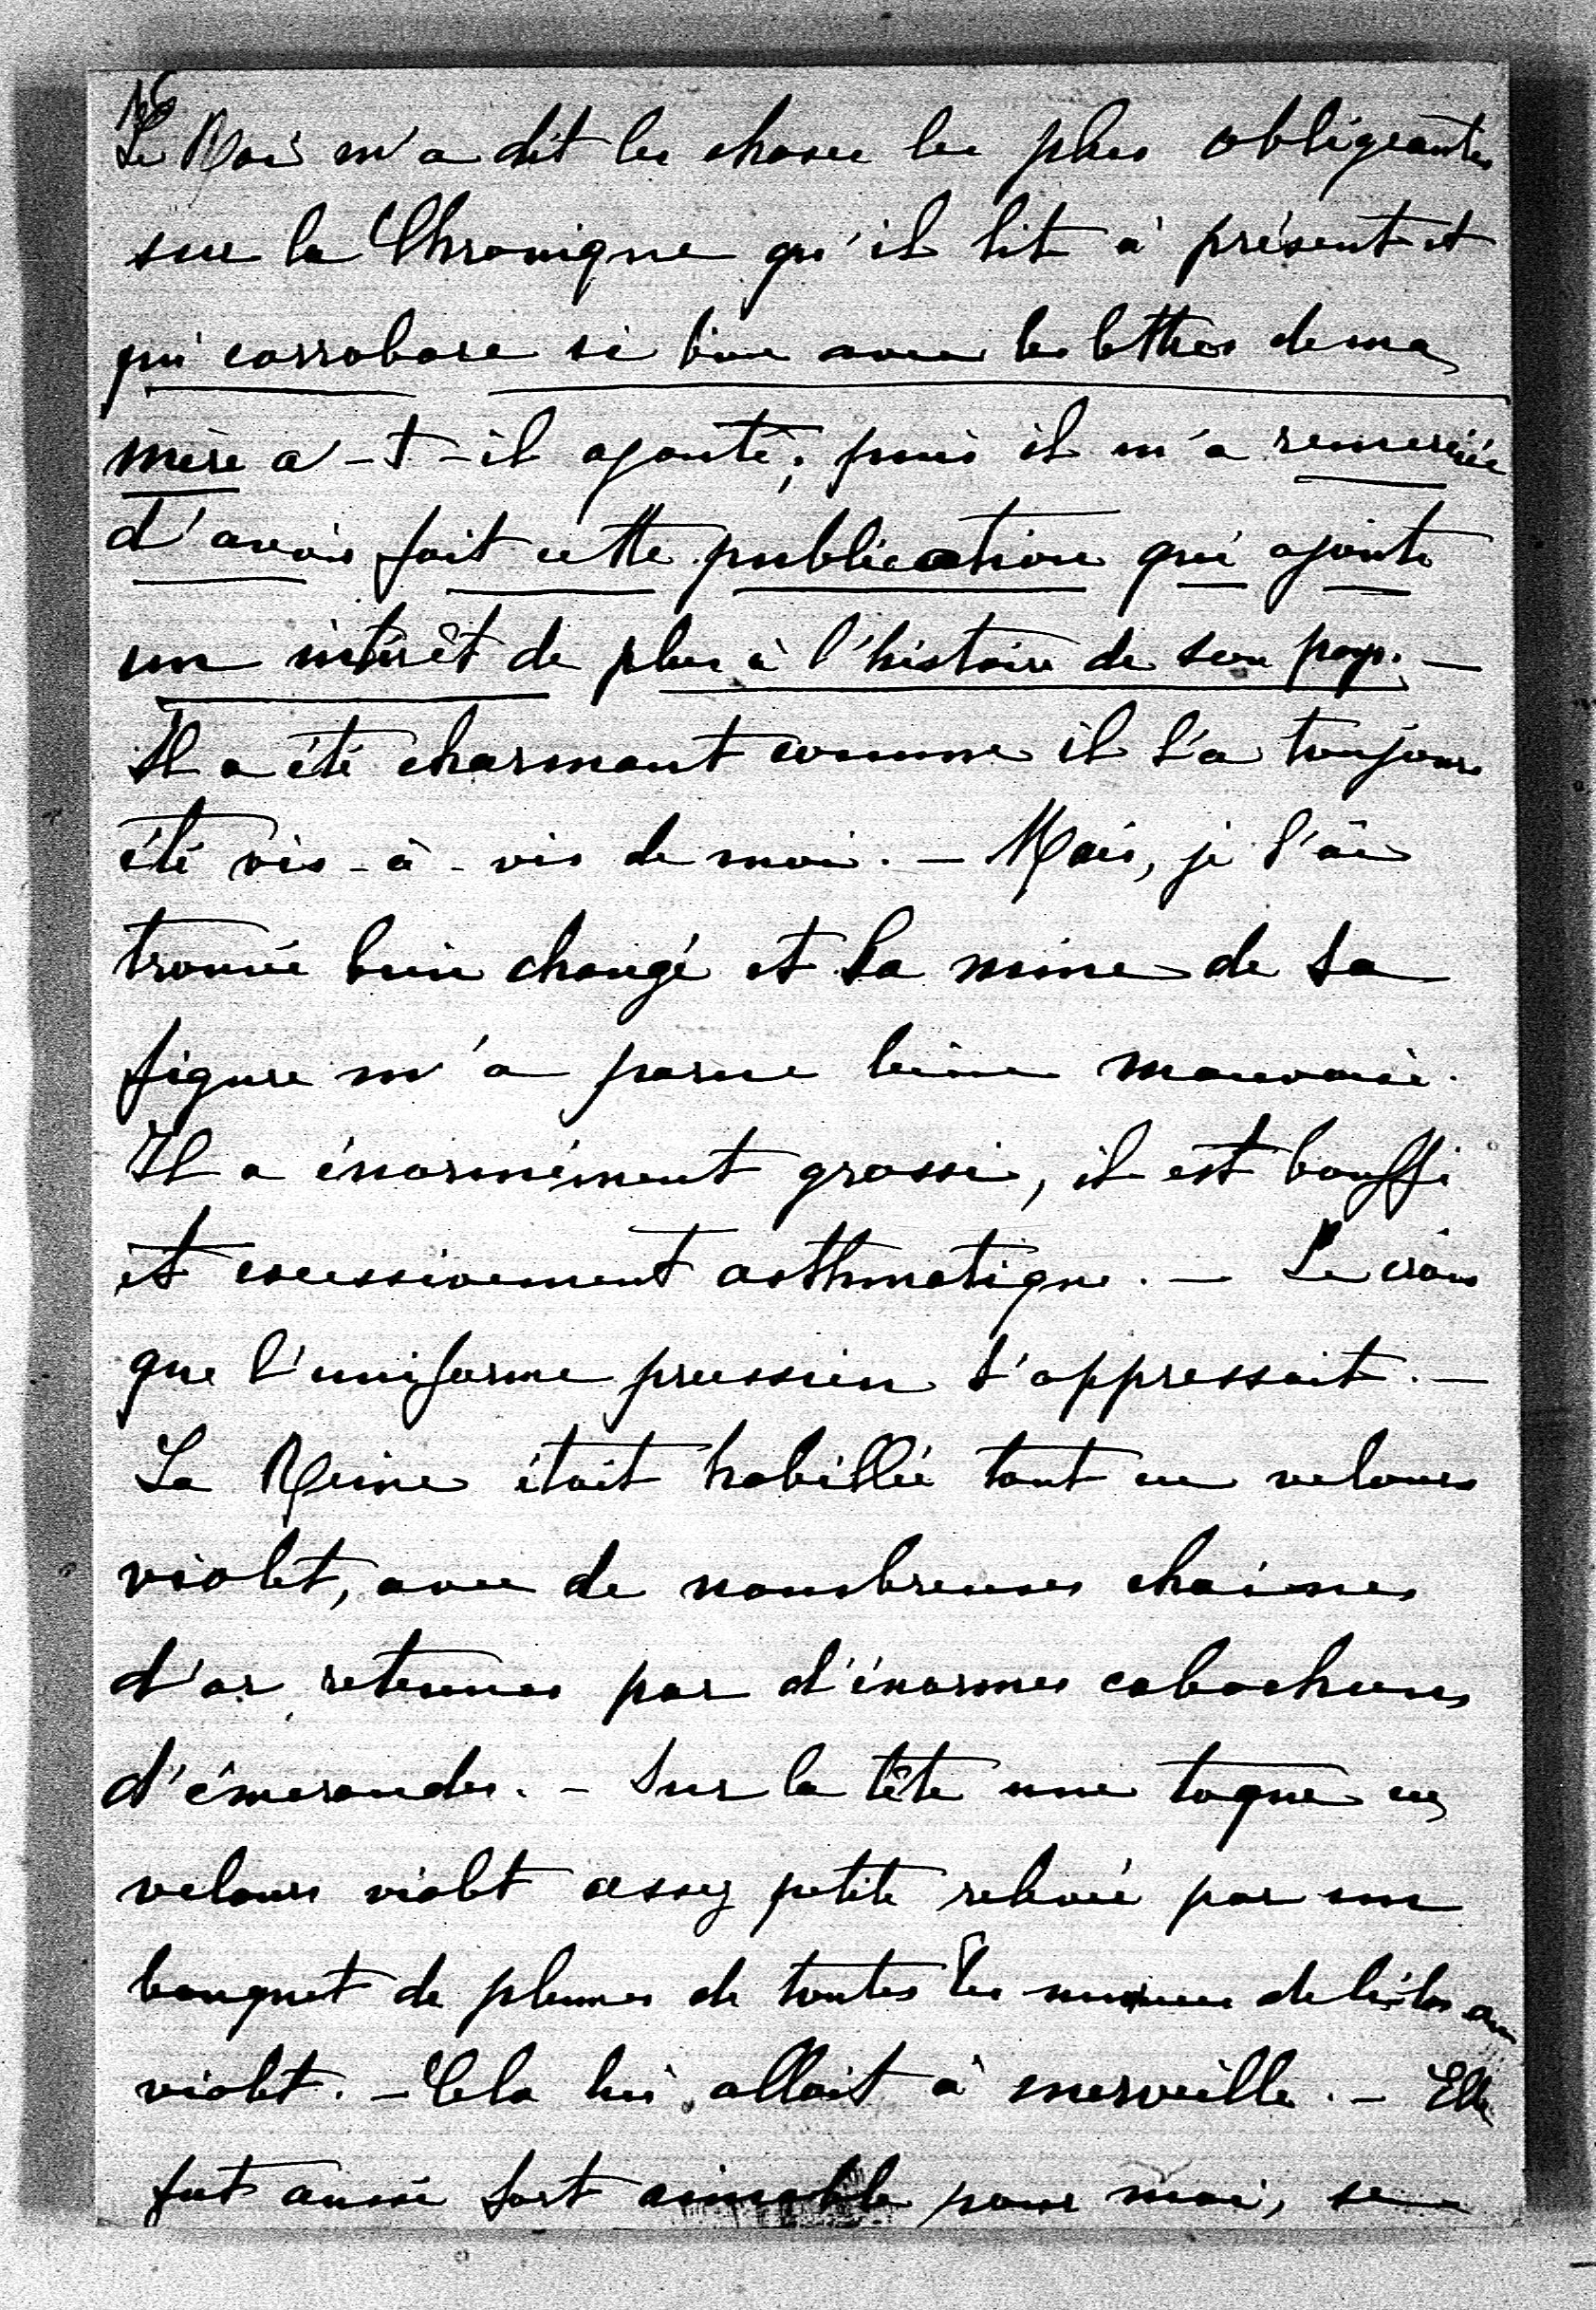 Le Roi m'a dit les choses les plus obligeantes
sur la Chronique qu'il lit à présent et
qui corrobore si bien avec les lettres de ma
mère a-t-il ajouté; puis il m'a remerciée
d'avoir fait cette publication qui ajoute
un intérêt de plus à l'histoire de son pays. —
Il a été charmant comme il l'a toujours
été vis-à-vis de moi. — Mais, je l'ai
trouvé bien changé et la mine de sa
figure m'a parue bien mauvaise.
Il a énormément grossi, il est bouffi
et excessivement asthmatique. — Je crois
que l'uniforme prussien l'oppressait. —
La Reine était habillée tout en velours
violet, avec de nombreuses chaînes
d'or retenues par d'énormes cabochons
d'émeraudes. — Sur la tête une toque en
velours violet assez petite relevée par un
bouquet de plumes de toutes les nuances de lilas au
violet. — Cela lui allait à merveille. — Elle
fut aussi fort aimable pour moi, se